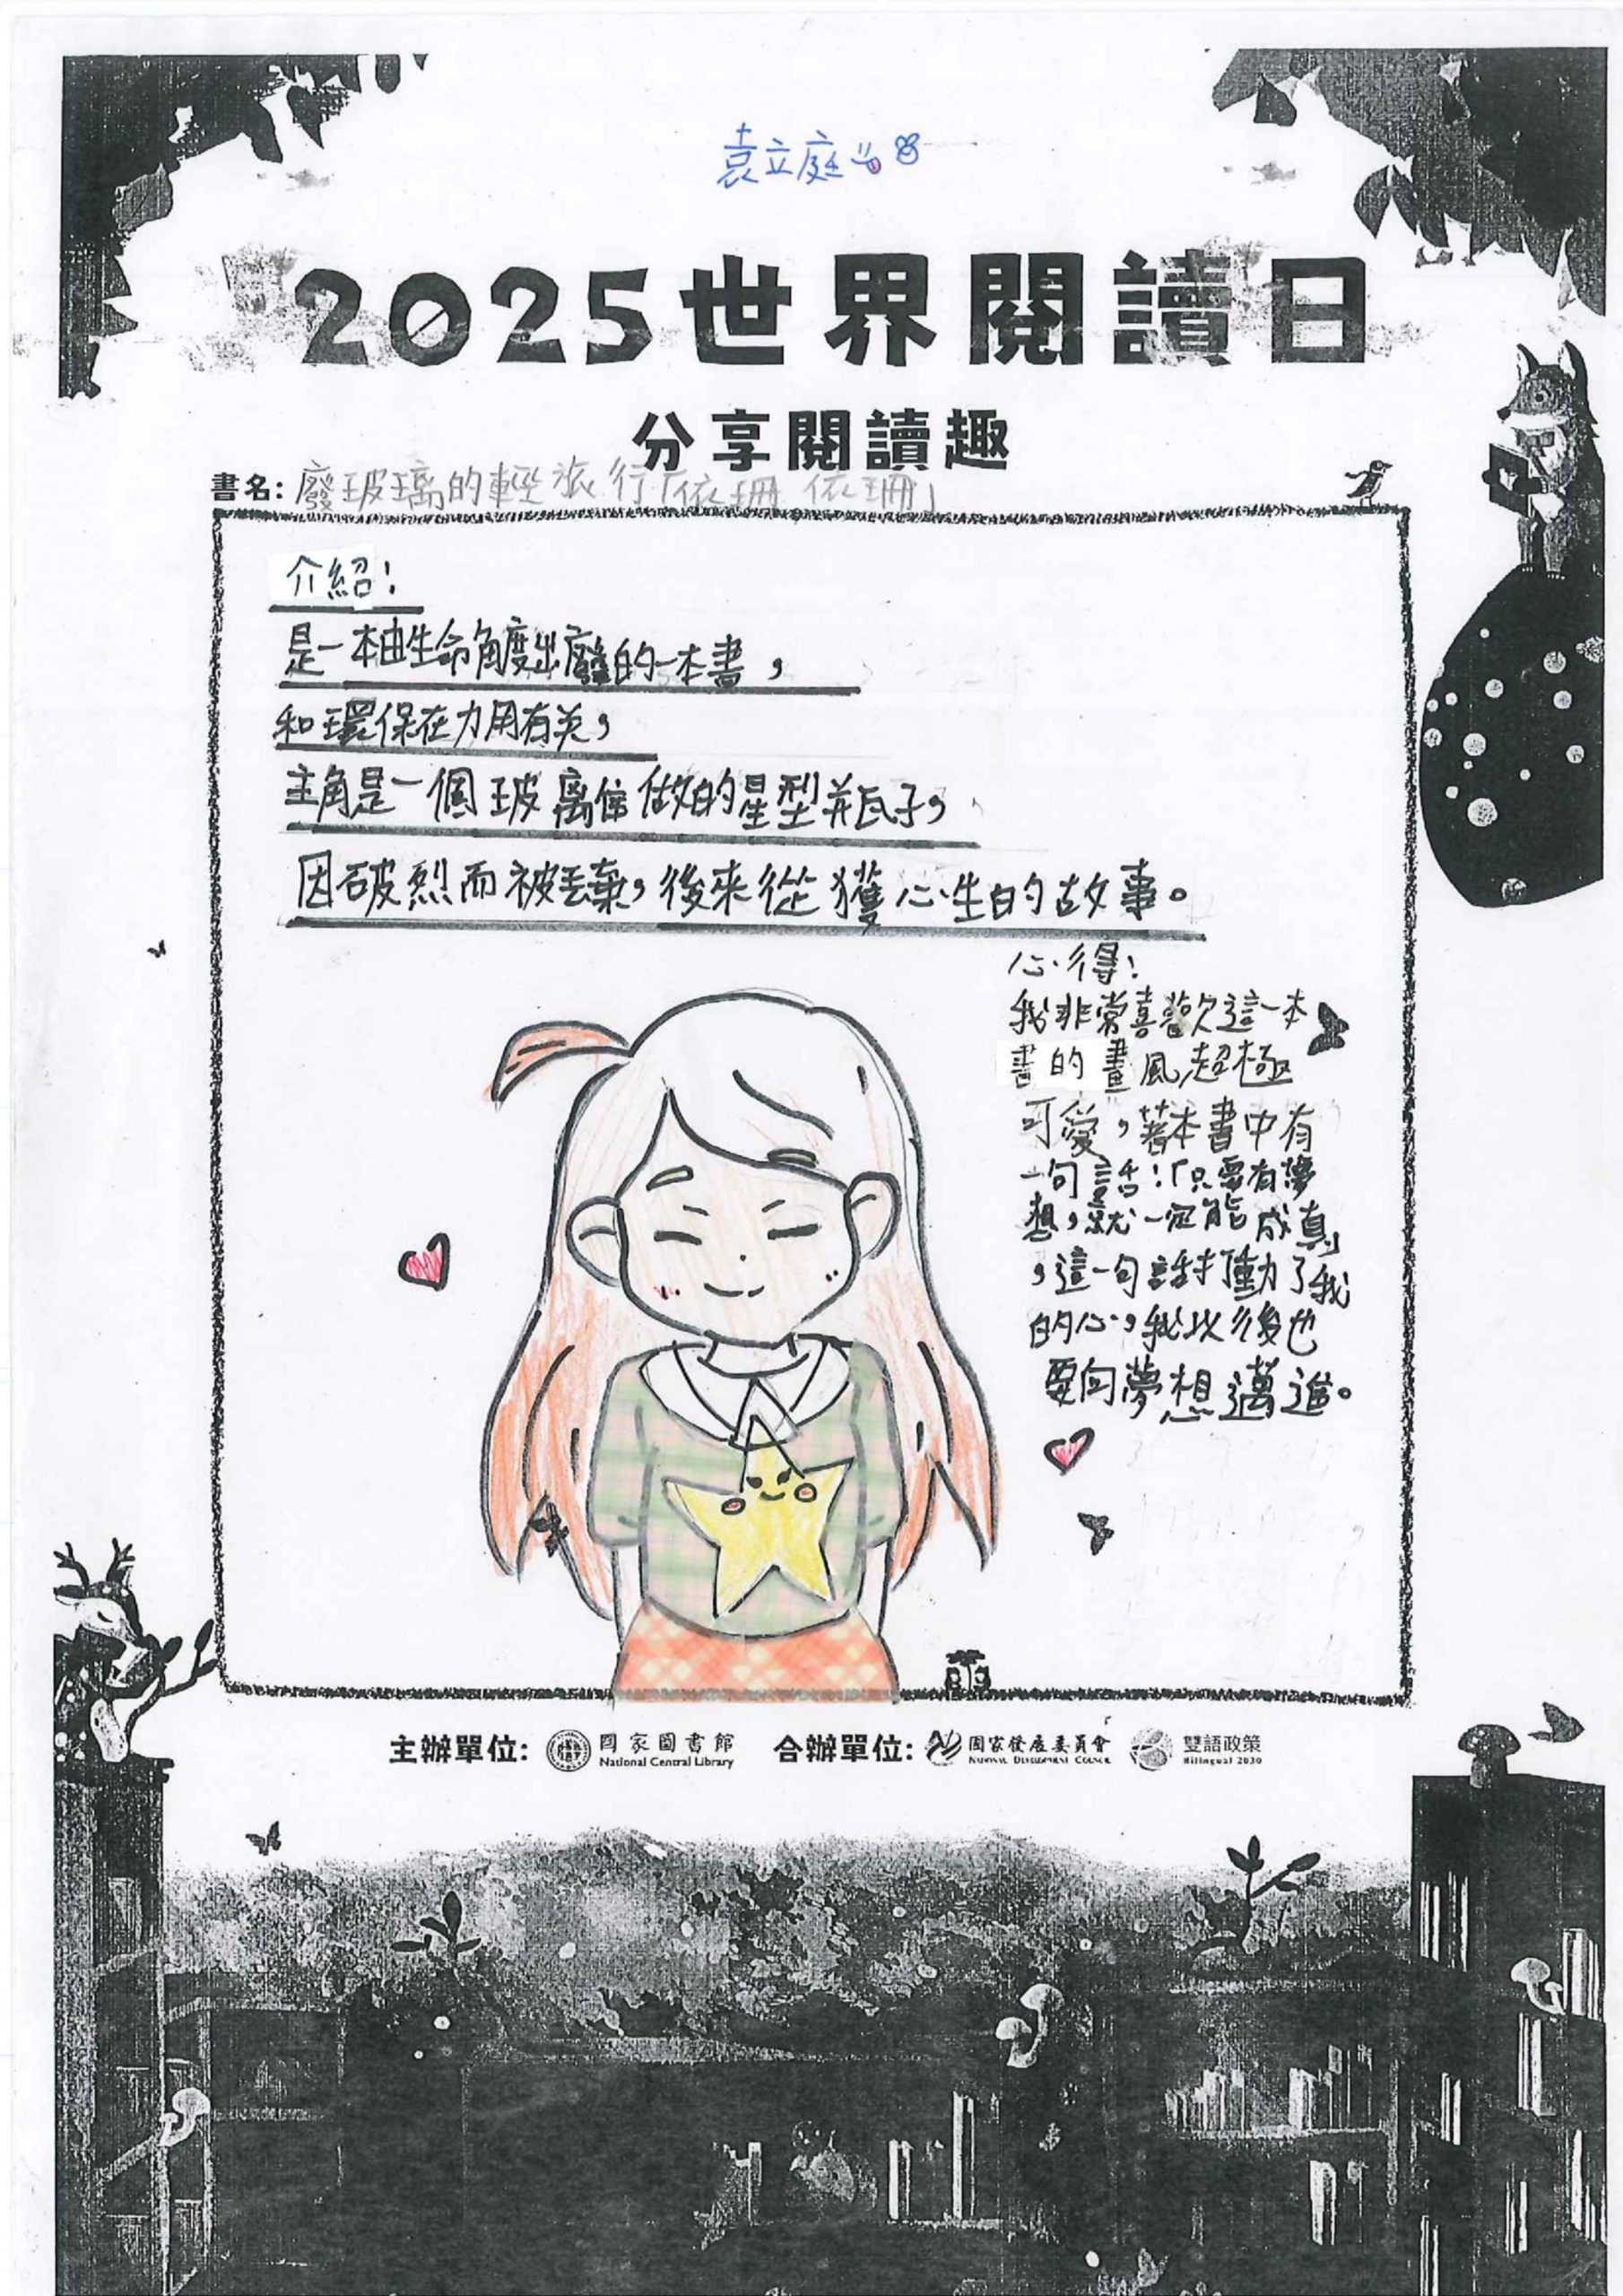 袁立庭
2025世界閱讀日
分享閱讀趣
書名:廢玻璃的輕旅行「依珊 依珊」
介紹!
是一本由生命角度出廢的一本書,
和環保在力用有关,
主角是一個玻离做的星型并瓦子,
因破烈而被丟棄,後來從獲心生的故事。
心得!
我非常喜歡這一本
書的畫風,超極
可愛,著本書中有
一句話:「只要有夢
想,就一定能成真」
,這一句話打動了我
的心,我以後也
要向夢想邁進。
主辦單位: 國家圖書館 合辦單位: 國家發展委員會 雙語政策
National Central Library National Development Council Bilingual 2030